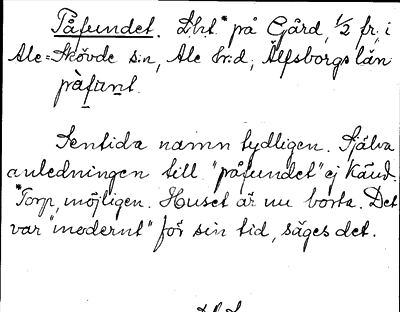 Påfundet. Lht.* på Gård, 1/2 fr, i
Ale-Skövde sn, Ale hrd, Älfsborgs län
pàfunt.
Sentida namn tydligen. Själva
anledningen till "påfundet" ej känd.
*Torp, möjligen. Huset är nu borta. Det
var "modernt" för sin tid, säges det.